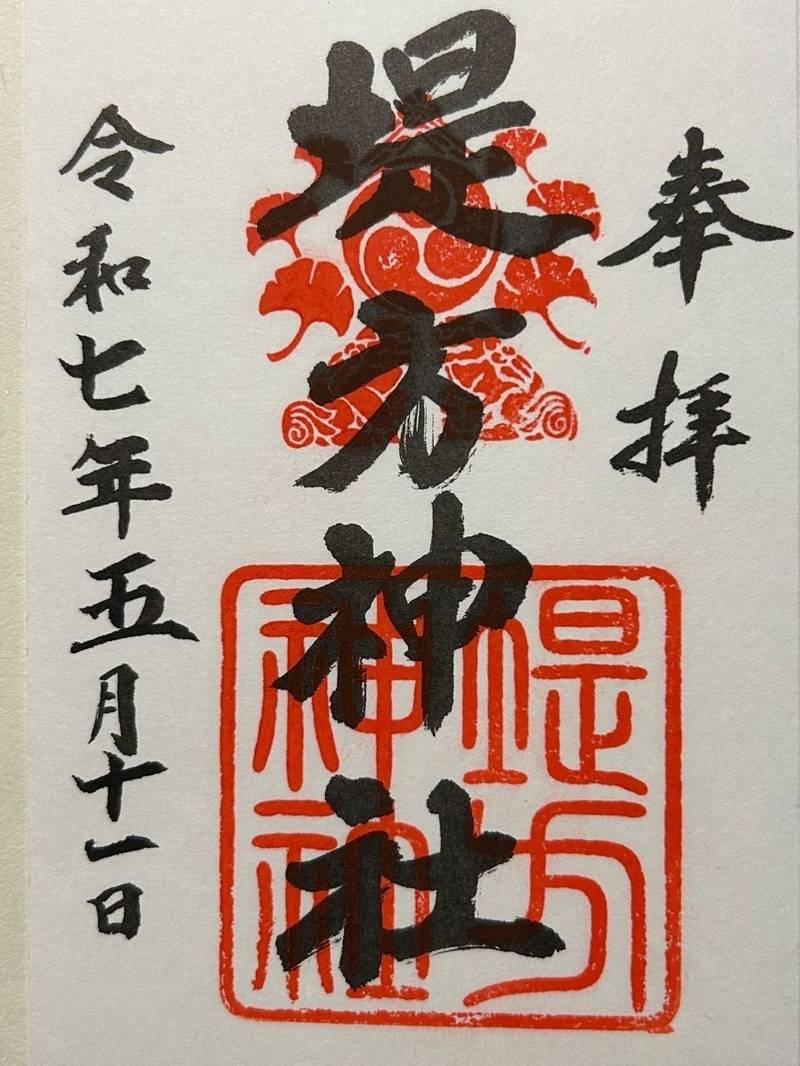 奉拝
堤方神社
堤方
神社
令和七年五月十一日